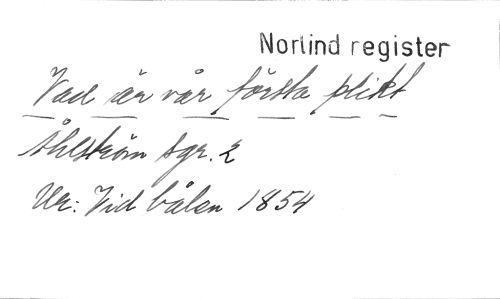 Norlind register
Vad är vår första plikt
Åhlström sgr. 2
Ur: Vid bålen 1854